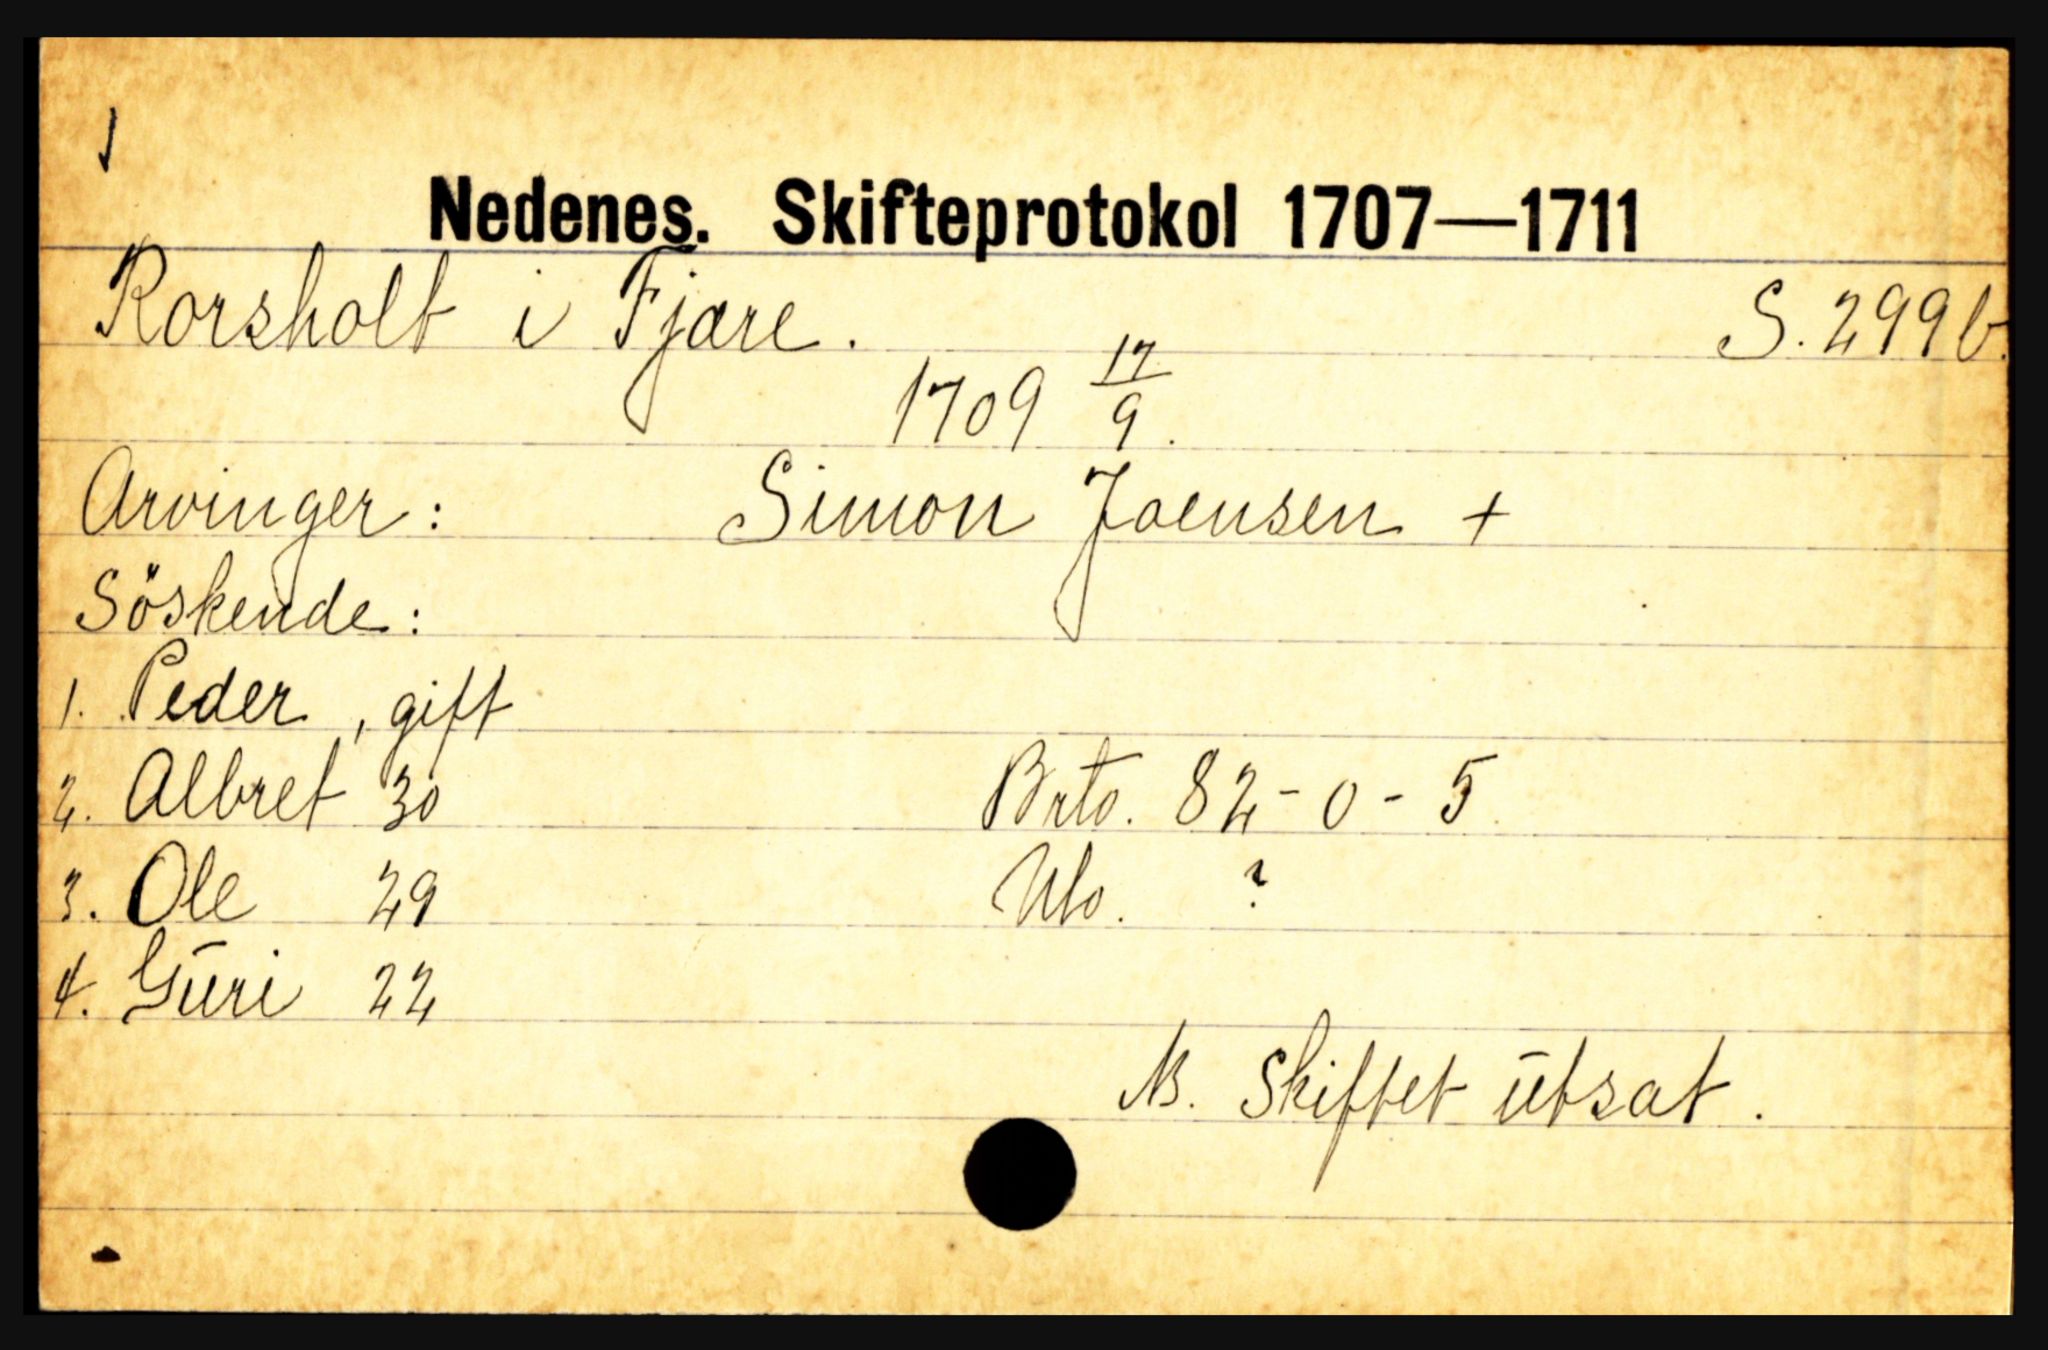 Nedenes. Skifteprotokol 1707—1711
Rorsholt i Fjære. S. 299 b.
1709 17/9.
Arvinger: Simon Joensen +
Söskende:
1. Peder, gift
2. Albret 30 Brto. 82-0-5
3. Ole 29 Nto. ?
4. Guri 22
NB. Skiftet utsat.